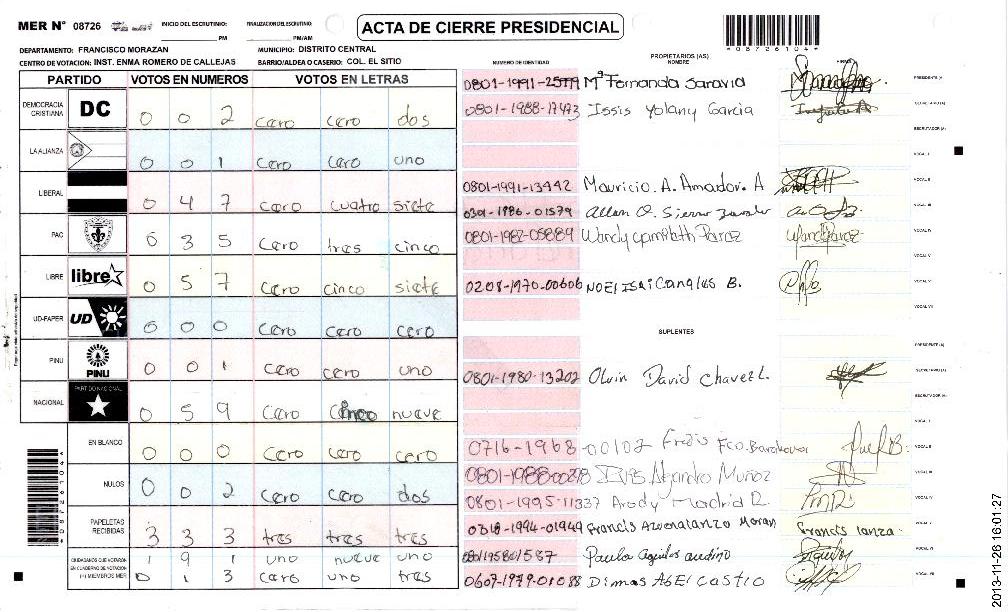 MER N° 08726
INICIO DEL ESCRUTINIO:
PM
FINALIZACION DEL ESCRUTINIO:
PM/AM
ACTA DE CIERRE PRESIDENCIAL
*08726104*
DEPARTAMENTO: FRANCISCO MORAZAN
MUNICIPIO: DISTRITO CENTRAL
CENTRO DE VOTACION: INST. ENMA ROMERO DE CALLEJAS
BARRIO/ALDEA O CASERIO: COL. EL SITIO
NUMERO DE IDENTIDAD
PROPIETARIOS (AS)
NOMBRE
FIRMA
PARTIDO VOTOS EN NUMEROS VOTOS EN LETRAS
DEMOCRACIA CRISTIANA DC 0 0 2 cero cero dos
LA ALIANZA 0 0 1 cero cero uno
LIBERAL 0 4 7 cero cuatro siete
PAC 0 3 5 cero tres cinco
LIBRE libre 0 5 7 cero cinco siete
UD-FAPER UD 0 0 0 cero cero cero
PINU PINU 0 0 1 cero cero uno
NACIONAL PARTIDO NACIONAL 0 5 9 cero cinco nueve
EN BLANCO 0 0 0 cero cero cero
NULOS 0 0 2 cero cero dos
PAPELETAS RECIBIDAS 3 3 3 tres tres tres
CIUDADANOS QUE VOTARON EN CUADERNO DE VOTACION 1 9 1 uno nueve uno
(+) MIEMBROS MER 0 1 3 cero uno tres
Mª Fernanda Saravia PRESIDENTE (A)
0801-1988-17473 Issis Yolany Garcia SECRETARIO (A)
ESCRUTADOR (A)
VOCAL I
0801-1991-13442 Mauricio. A. Amador. A VOCAL II
0301-1986-01579 Allan O. Sierra VOCAL III
0801-1982-05889 VOCAL IV
VOCAL V
0208-1970-00606 VOCAL VI
VOCAL VII
SUPLENTES
PRESIDENTE (A)
0801-1980-13202 Olvin David Chavez L. SECRETARIO (A)
ESCRUTADOR (A)
VOCAL I
0716-1968-00102 Fredis Fco. VOCAL II
Alejandro Muñoz VOCAL III
0801-1995-11337 Arody Madrid R. VOCAL IV
0318-1994-01949 Francis VOCAL V
VOCAL VI
0607-1979-01088 Dimas VOCAL VII
2013-11-28 16:01:27